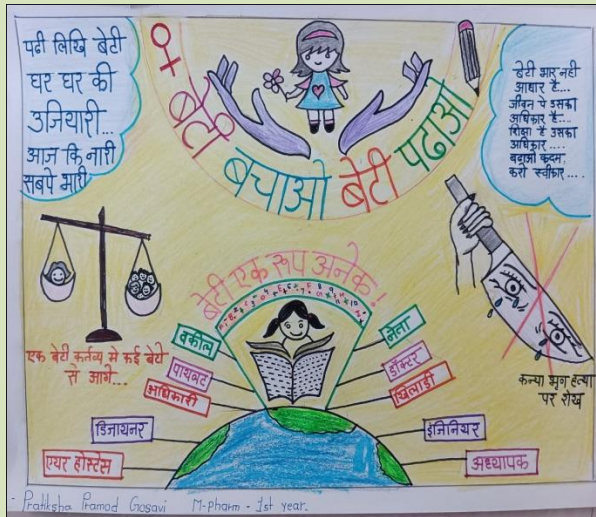 पढी लिखि बेटी
घर घर की
उजियारी...
आज कि नारी
सबपे भारी
बेटी बचाओ बेटी पढाओ
बेटी भार नही
आधार है...
जीवन पे उसका
अधिकार है...
शिक्षा है उसका
अधिकार....
बढाओ कदम
करो स्वीकार....
बेटी एक रूप अनेक!
एक बेटी कर्तव्य मे कई बेटो
से आगे...
वकील
पायलट
अधिकारी
डिजायनर
एयर होस्टेस
नेता
डॉक्टर
खिलाडी
इंजिनियर
अध्यापक
कन्या भ्रूण हत्या
पर रोख
- Pratiksha Pramod Gosavi M-pharm - 1st year.